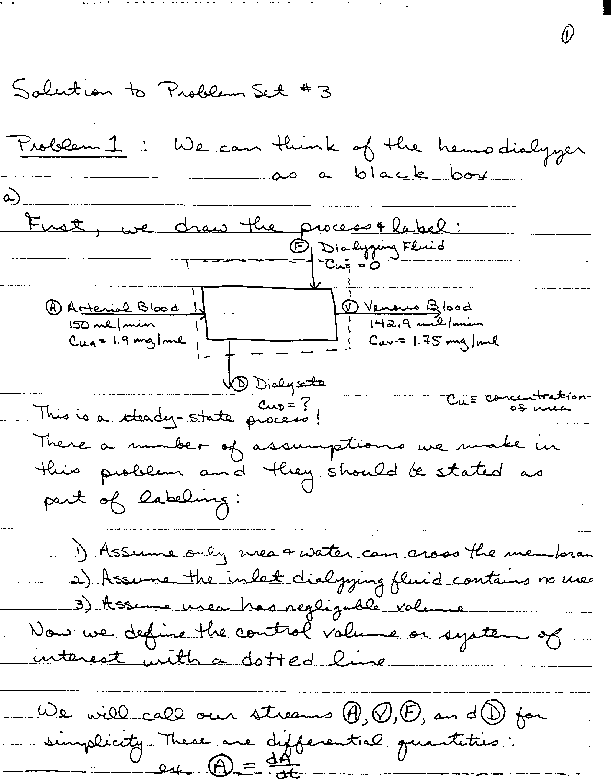 ①
Solution to Problem Set #3
Problem 1 : We can think of the hemodialyzer
as a black box
a)
First, we draw the process & label:
Ⓕ Dialyzing Fluid
Cuf = 0
Ⓐ Arterial Blood
150 ml/min
CuA = 1.9 mg/ml
Ⓥ Venous Blood
142.9 ml/min
Cuv = 1.75 mg/ml
Ⓓ Dialysate
CuD = ?
Cui = concentration
of urea
This is a steady-state process!
There a number of assumptions we make in
this problem and they should be stated as
part of labeling:
1) Assume only urea & water can cross the membran
2) Assume the inlet dialyzing fluid contains no urea
3) Assume urea has negligable volume
Now we define the control volume or system of
interest with a dotted line
We will call our streams Ⓐ, Ⓥ, Ⓕ, and Ⓓ for
simplicity. These are differential quantities:
ex. Ⓐ = dA/dt